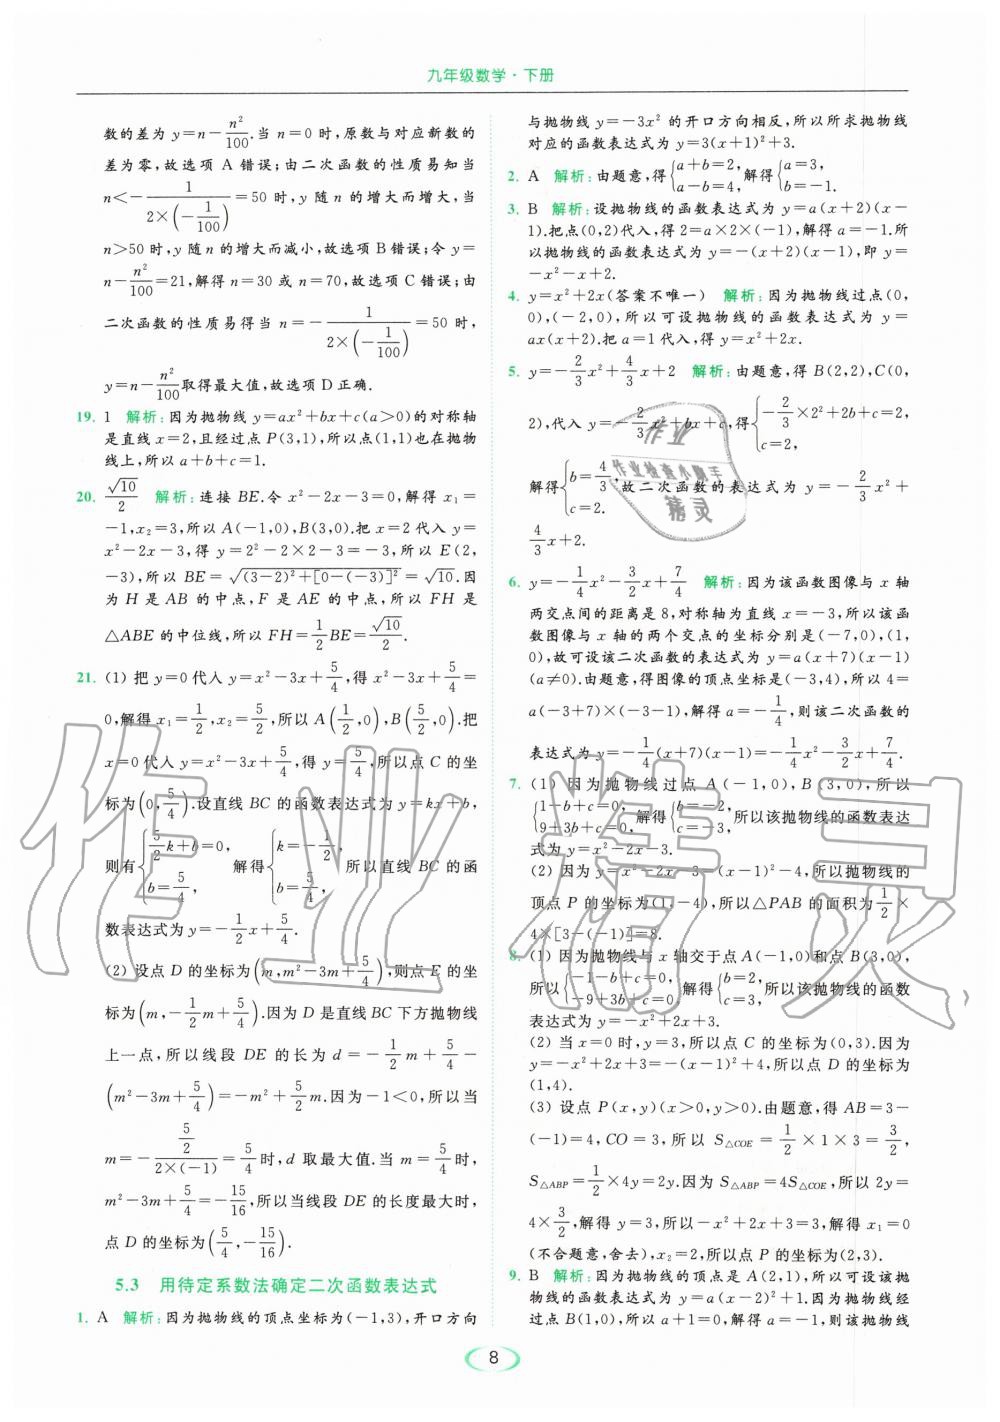 九年级数学·下册
数的差为 y=n-n²/100.当 n=0 时,原数与对应新数的
差为零,故选项 A 错误;由二次函数的性质易知当
n<-1/(2×(-1/100))=50 时,y 随 n 的增大而增大,当
n>50 时,y 随 n 的增大而减小,故选项 B 错误;令 y=
n-n²/100=21,解得 n=30 或 n=70,故选项 C 错误;由
二次函数的性质易得当 n=-1/(2×(-1/100))=50 时,
y=n-n²/100取得最大值,故选项 D 正确.
19. 1 解析:因为抛物线 y=ax²+bx+c(a>0)的对称轴
是直线 x=2,且经过点 P(3,1),所以点(1,1)也在抛物
线上,所以 a+b+c=1.
20. √10/2 解析:连接 BE.令 x²-2x-3=0,解得 x₁=
-1,x₂=3,所以 A(-1,0),B(3,0).把 x=2 代入 y=
x²-2x-3,得 y=2²-2×2-3=-3,所以 E(2,
-3),所以 BE=√((3-2)²+[0-(-3)]²)=√10.因
为 H 是 AB 的中点,F 是 AE 的中点,所以 FH 是
△ABE 的中位线,所以 FH=1/2BE=√10/2.
21. (1) 把 y=0 代入 y=x²-3x+5/4,得 x²-3x+5/4=
0,解得 x₁=1/2,x₂=5/2,所以 A(1/2,0),B(5/2,0).把
x=0 代入 y=x²-3x+5/4,得 y=5/4,所以点 C 的坐
标为(0,5/4).设直线 BC 的函数表达式为 y=kx+b,
则有{5/2k+b=0, b=5/4, 解得{k=-1/2, b=5/4, 所以直线 BC 的函
数表达式为 y=-1/2x+5/4.
(2) 设点 D 的坐标为(m,m²-3m+5/4),则点 E 的坐
标为(m,-1/2m+5/4).因为 D 是直线 BC 下方抛物线
上一点,所以线段 DE 的长为 d=-1/2m+5/4-
(m²-3m+5/4)=-m²+5/2m.因为-1<0,所以当
m=-(5/2)/(2×(-1))=5/4时,d 取最大值.当 m=5/4时,
m²-3m+5/4=-15/16,所以当线段 DE 的长度最大时,
点 D 的坐标为(5/4,-15/16).
5.3 用待定系数法确定二次函数表达式
1. A 解析:因为抛物线的顶点坐标为(-1,3),开口方向
与抛物线 y=-3x² 的开口方向相反,所以所求抛物线
对应的函数表达式为 y=3(x+1)²+3.
2. A 解析:由题意,得{a+b=2, a-b=4, 解得{a=3, b=-1.
3. B 解析:设抛物线的函数表达式为 y=a(x+2)(x-
1).把点(0,2)代入,得 2=a×2×(-1),解得 a=-1.所
以抛物线的函数表达式为 y=-(x+2)(x-1),即 y=
-x²-x+2.
4. y=x²+2x(答案不唯一) 解析:因为抛物线过点(0,
0),(-2,0),所以可设抛物线的函数表达式为 y=
ax(x+2).把 a=1 代入,得 y=x²+2x.
5. y=-2/3x²+4/3x+2 解析:由题意,得 B(2,2),C(0,
2),代入 y=-2/3x²+bx+c,得{-2/3×2²+2b+c=2, c=2,
解得{b=4/3, c=2. 故二次函数的表达式为 y=-2/3x²+
4/3x+2.
6. y=-1/4x²-3/2x+7/4 解析:因为该函数图像与 x 轴
两交点间的距离是 8,对称轴为直线 x=-3,所以该函
数图像与 x 轴的两个交点的坐标分别是(-7,0),(1,
0),故可设该二次函数的表达式为 y=a(x+7)(x-1)
(a≠0).由题意,得图像的顶点坐标是(-3,4),所以 4=
a(-3+7)×(-3-1),解得 a=-1/4,则该二次函数的
表达式为 y=-1/4(x+7)(x-1)=-1/4x²-3/2x+7/4.
7. (1) 因为抛物线过点 A(-1,0),B(3,0),所以
{1-b+c=0, 9+3b+c=0, 解得{b=-2, c=-3, 所以该抛物线的函数表达
式为 y=x²-2x-3.
(2) 因为 y=x²-2x-3=(x-1)²-4,所以抛物线的
顶点 P 的坐标为(1,-4),所以△PAB 的面积为1/2×
4×[3-(-1)]=8.
8. (1) 因为抛物线与 x 轴交于点 A(-1,0)和点 B(3,0),
所以{-1-b+c=0, -9+3b+c=0, 解得{b=2, c=3, 所以该抛物线的函数
表达式为 y=-x²+2x+3.
(2) 当 x=0 时,y=3,所以点 C 的坐标为(0,3).因为
y=-x²+2x+3=-(x-1)²+4,所以点 D 的坐标为
(1,4).
(3) 设点 P(x,y)(x>0,y>0).由题意,得 AB=3-
(-1)=4,CO=3,所以 S△COE=1/2×1×3=3/2,
S△ABP=1/2×4y=2y.因为 S△ABP=4S△COE,所以 2y=
4×3/2,解得 y=3,所以-x²+2x+3=3,解得 x₁=0
(不合题意,舍去),x₂=2,所以点 P 的坐标为(2,3).
9. B 解析:因为抛物线的顶点为(2,1),所以可设该抛
物线的函数表达式为 y=a(x-2)²+1.因为抛物线经
过点 B(1,0),所以 a+1=0,解得 a=-1,则该抛物线
8
作业
作业检查小助手
精灵
作业精灵